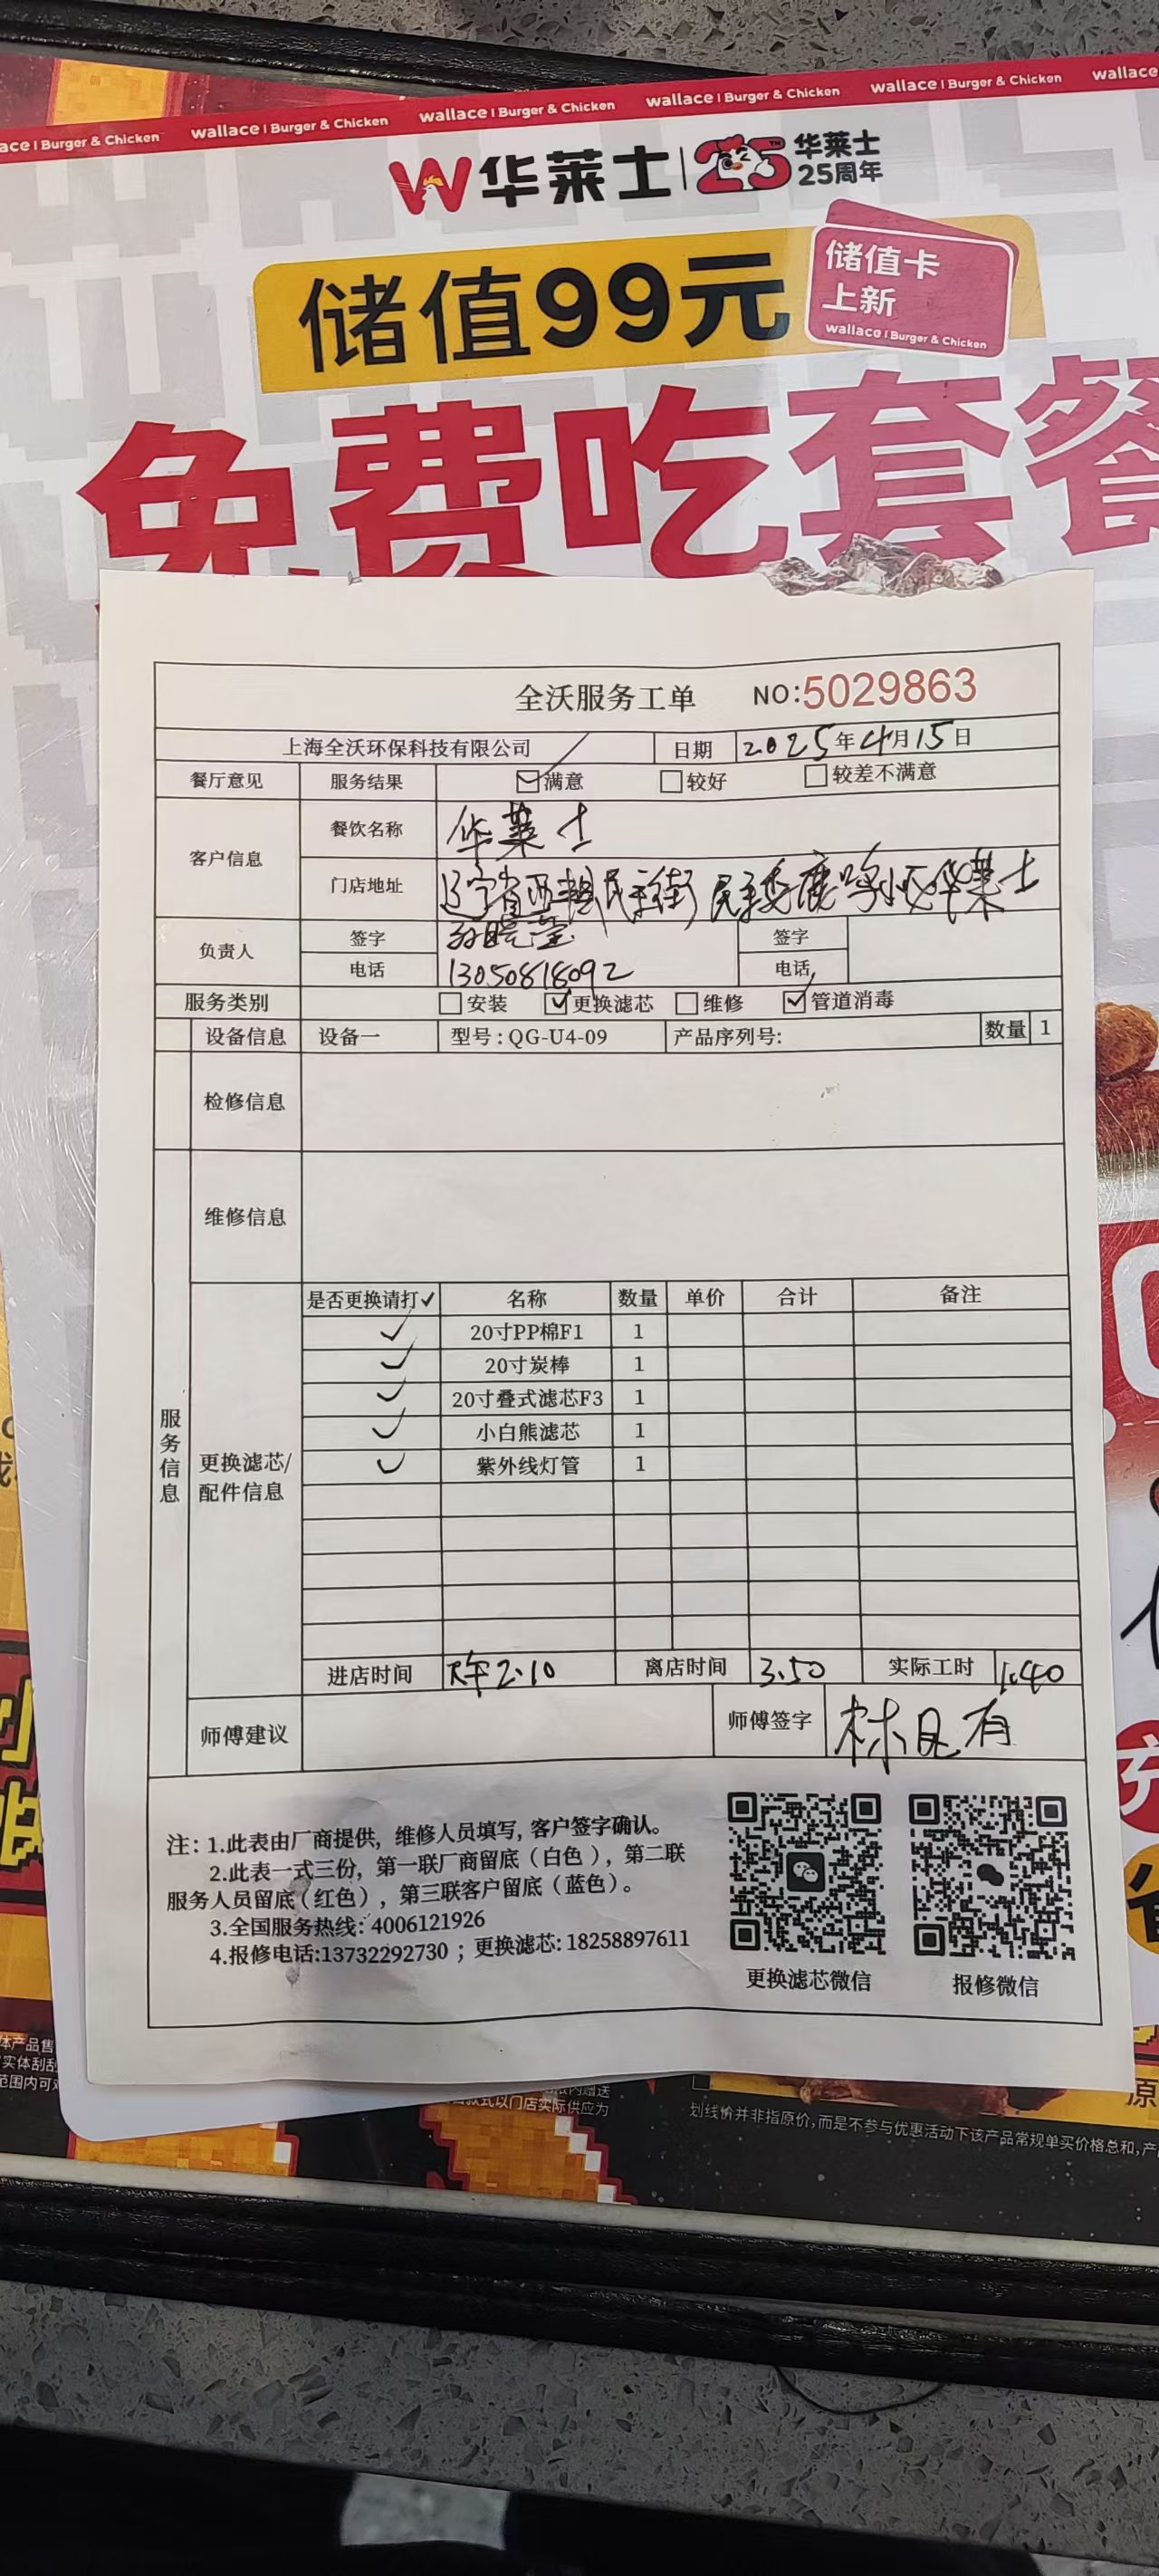 ace | Burger & Chicken wallace | Burger & Chicken wallace | Burger & Chicken wallace | Burger & Chicken wallace | Burger & Chicken wallace
华莱士 | 25 华莱士
25周年
储值99元
储值卡
上新
wallace | Burger & Chicken
免费吃套餐
全沃服务工单 NO:5029863
上海全沃环保科技有限公司 日期 2025年4月15日
餐厅意见 服务结果 满意 较好 较差不满意
客户信息 餐饮名称 华莱士
门店地址 辽宁省 民主街 华莱士
负责人 签字 签字
电话 13050818092 电话
服务类别 安装 ✓更换滤芯 维修 ✓管道消毒
设备信息 设备一 型号:QG-U4-09 产品序列号: 数量 1
检修信息
维修信息
服务信息
更换滤芯/
配件信息
是否更换请打✓ 名称 数量 单价 合计 备注
✓ 20寸PP棉F1 1
✓ 20寸炭棒 1
✓ 20寸叠式滤芯F3 1
✓ 小白熊滤芯 1
✓ 紫外线灯管 1
进店时间 下午2.10 离店时间 3.50 实际工时 1.40
师傅建议 师傅签字 林
注: 1.此表由厂商提供, 维修人员填写, 客户签字确认。
2.此表一式三份, 第一联厂商留底(白色), 第二联
服务人员留底(红色), 第三联客户留底(蓝色)。
3.全国服务热线: 4006121926
4.报修电话:13732292730 ; 更换滤芯: 18258897611
更换滤芯微信 报修微信
体产品售
实体刮刮
范围内可
款式以门店实际供应为
原
划线价并非指原价,而是不参与优惠活动下该产品常规单买价格总和,产